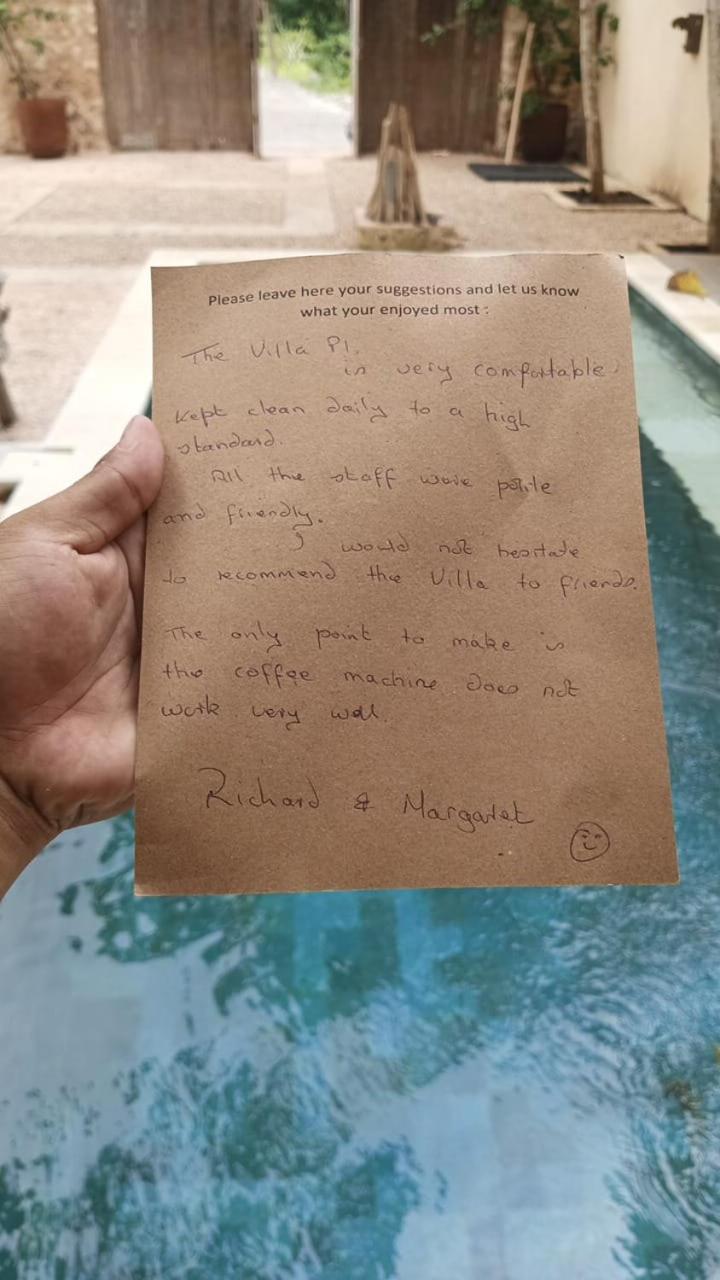 Please leave here your suggestions and let us know
what your enjoyed most :
The Villa P1.
is very comfortable,
kept clean daily to a high
standard.
All the staff were polite
and friendly.
I would not hesitate
to recommend the Villa to friends.
The only point to make is
the coffee machine does not
work very well.
Richard & Margaret